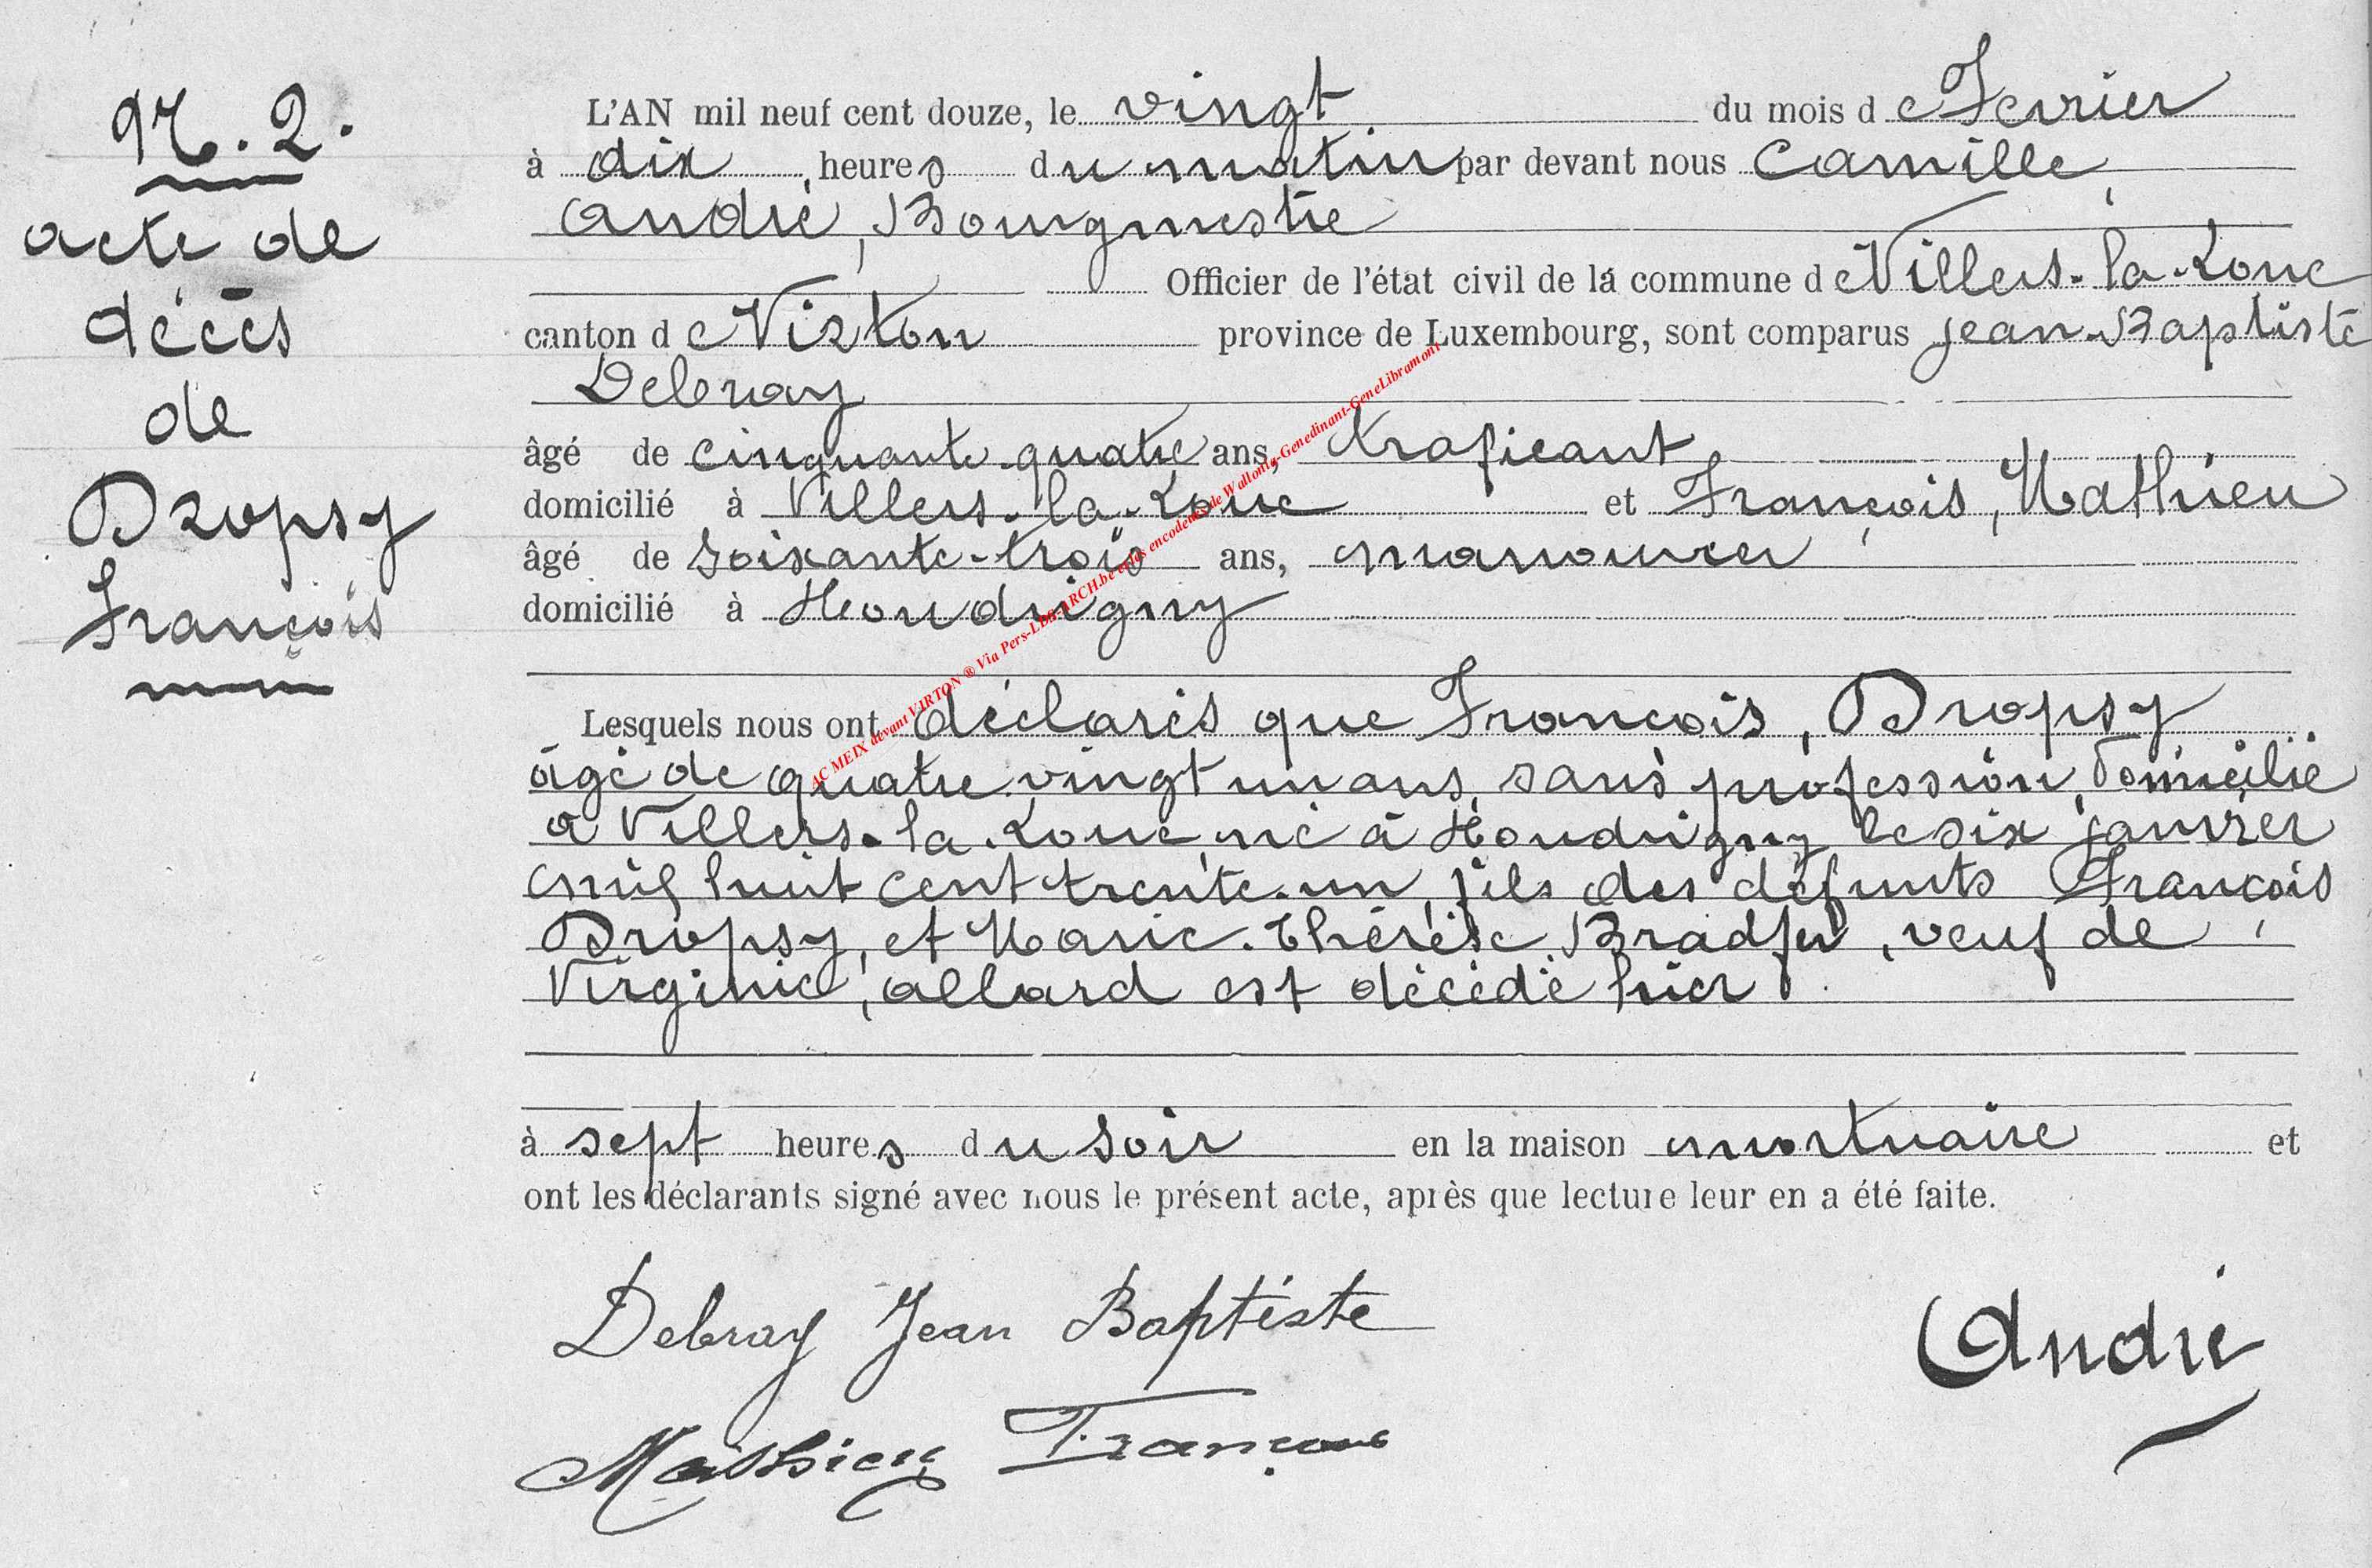 N. 2.
acte de
décès
de
Dropsy
François
L'AN mil neuf cent douze, le vingt du mois de Fevrier
à dix heures du matin par devant nous Camille,
André, Bourgmestre
Officier de l'état civil de la commune de Villers-la-Loue
canton de Virton province de Luxembourg, sont comparus Jean-Baptiste
Debray
âgé de cinquante-quatre ans, traficant
domicilié à Villers-la-Loue et François, Mathieu
âgé de soixante-trois ans, manouvrer
domicilié à Houdrigny
Lesquels nous ont déclarés que François, Dropsy
âgé de quatre vingt un ans, sans profession, domicilié
à Villers-la-Loue, né à Houdrigny le six janvier
mil huit cent trente-un, fils des défunts François
Dropsy, et Marie-Thérèse Bradfer, veuf de
Virginie, allard est décédé hier
à sept heures du soir en la maison mortuaire et
ont les déclarants signé avec nous le présent acte, après que lecture leur en a été faite.
Debray Jean Baptiste
André
Mathieu François
AC MEIX devant VIRTON ® Via Pers-LDS-ARCH.be et les encodeurs de Wallonia-Genedinant-GeneLibramont